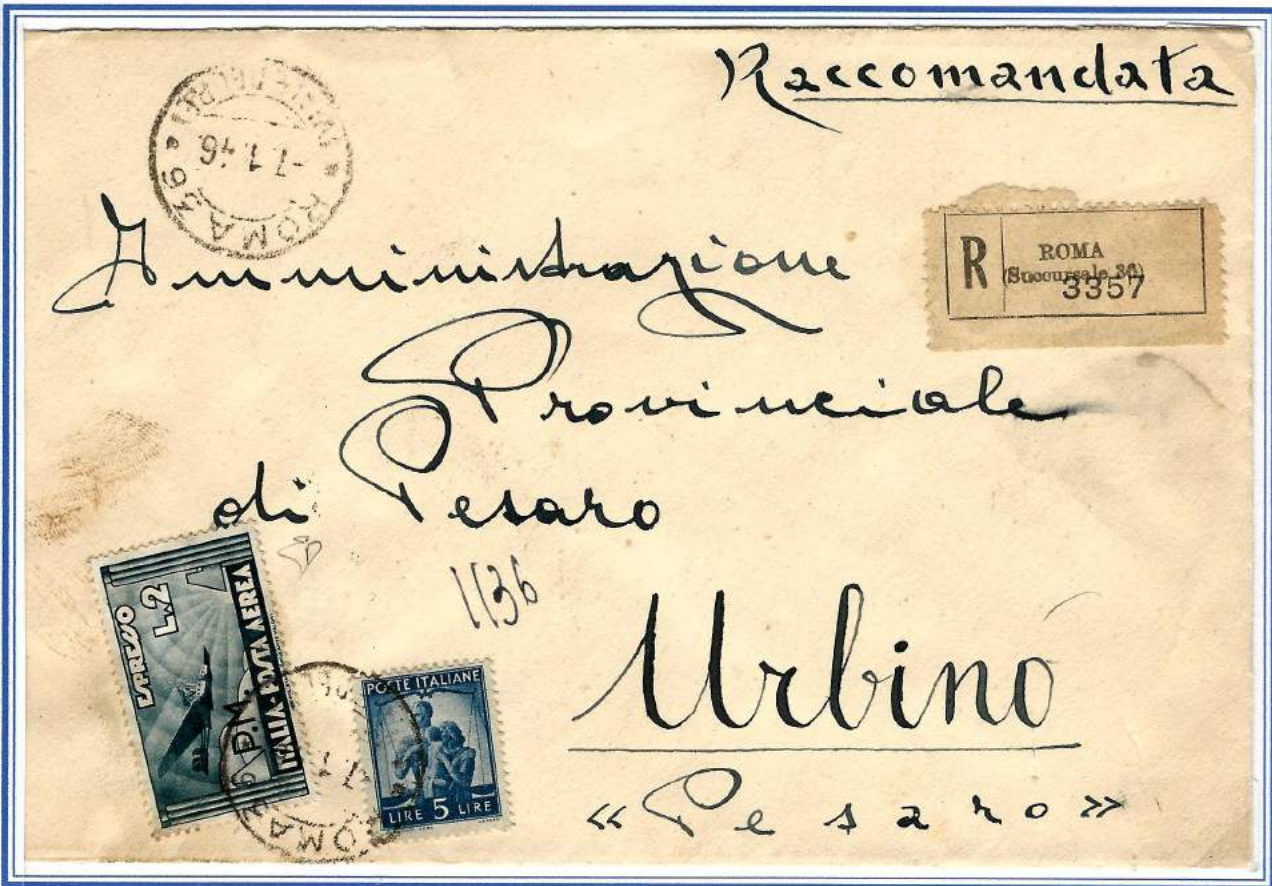 Raccomandata
ROMA 36
-7.1.46
R
ROMA
(Succursale 36)
3357
Amministrazione
Provinciale
di Pesaro
1136
Urbino
«Pesaro»
ESPRESSO
L.2
P.M.
ITALIA·POSTA AEREA
POSTE ITALIANE
LIRE 5 LIRE
ROMA 36